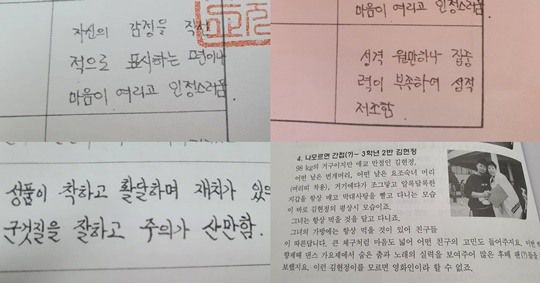 자신의 감정을 직선
적으로 표시하는 면이나
마음이 여리고 인정스러움.
마음이 여리고 인정스러움
성격 원만하나 집중
력이 부족하여 성적
저조함
성품이 착하고 활달하며 재치가 있으
군것질을 잘하고 주의가 산만함.
4. 나모르면 간첩(?)~ 3학년 2반 김현정
98 kg의 거구이지만 애교 만점인 김현정,
어떤 날은 번개머리, 어떤 날은 요조숙녀 머리
(머리띠 착용), 거기에다가 조그맣고 알록달록한
지갑을 항상 매고 막대사탕을 빨고 다니는 모습
이 바로 김현정의 평상시 모습이죠.
그녀는 항상 먹을 것을 달고 다니죠.
그녀의 가방에는 항상 먹을 것이 있어 친구들
이 따른답니다. 큰 체구처럼 마음도 넓어 어떤 친구의 고민도 들어주지요. 이번
향제때 댄스 가요제에서 숨은 춤과 노래의 실력을 보여주어 많은 후배 팬(?)들을
보했지요. 이런 김현정이를 모르면 영화인이라 할 수 없죠.